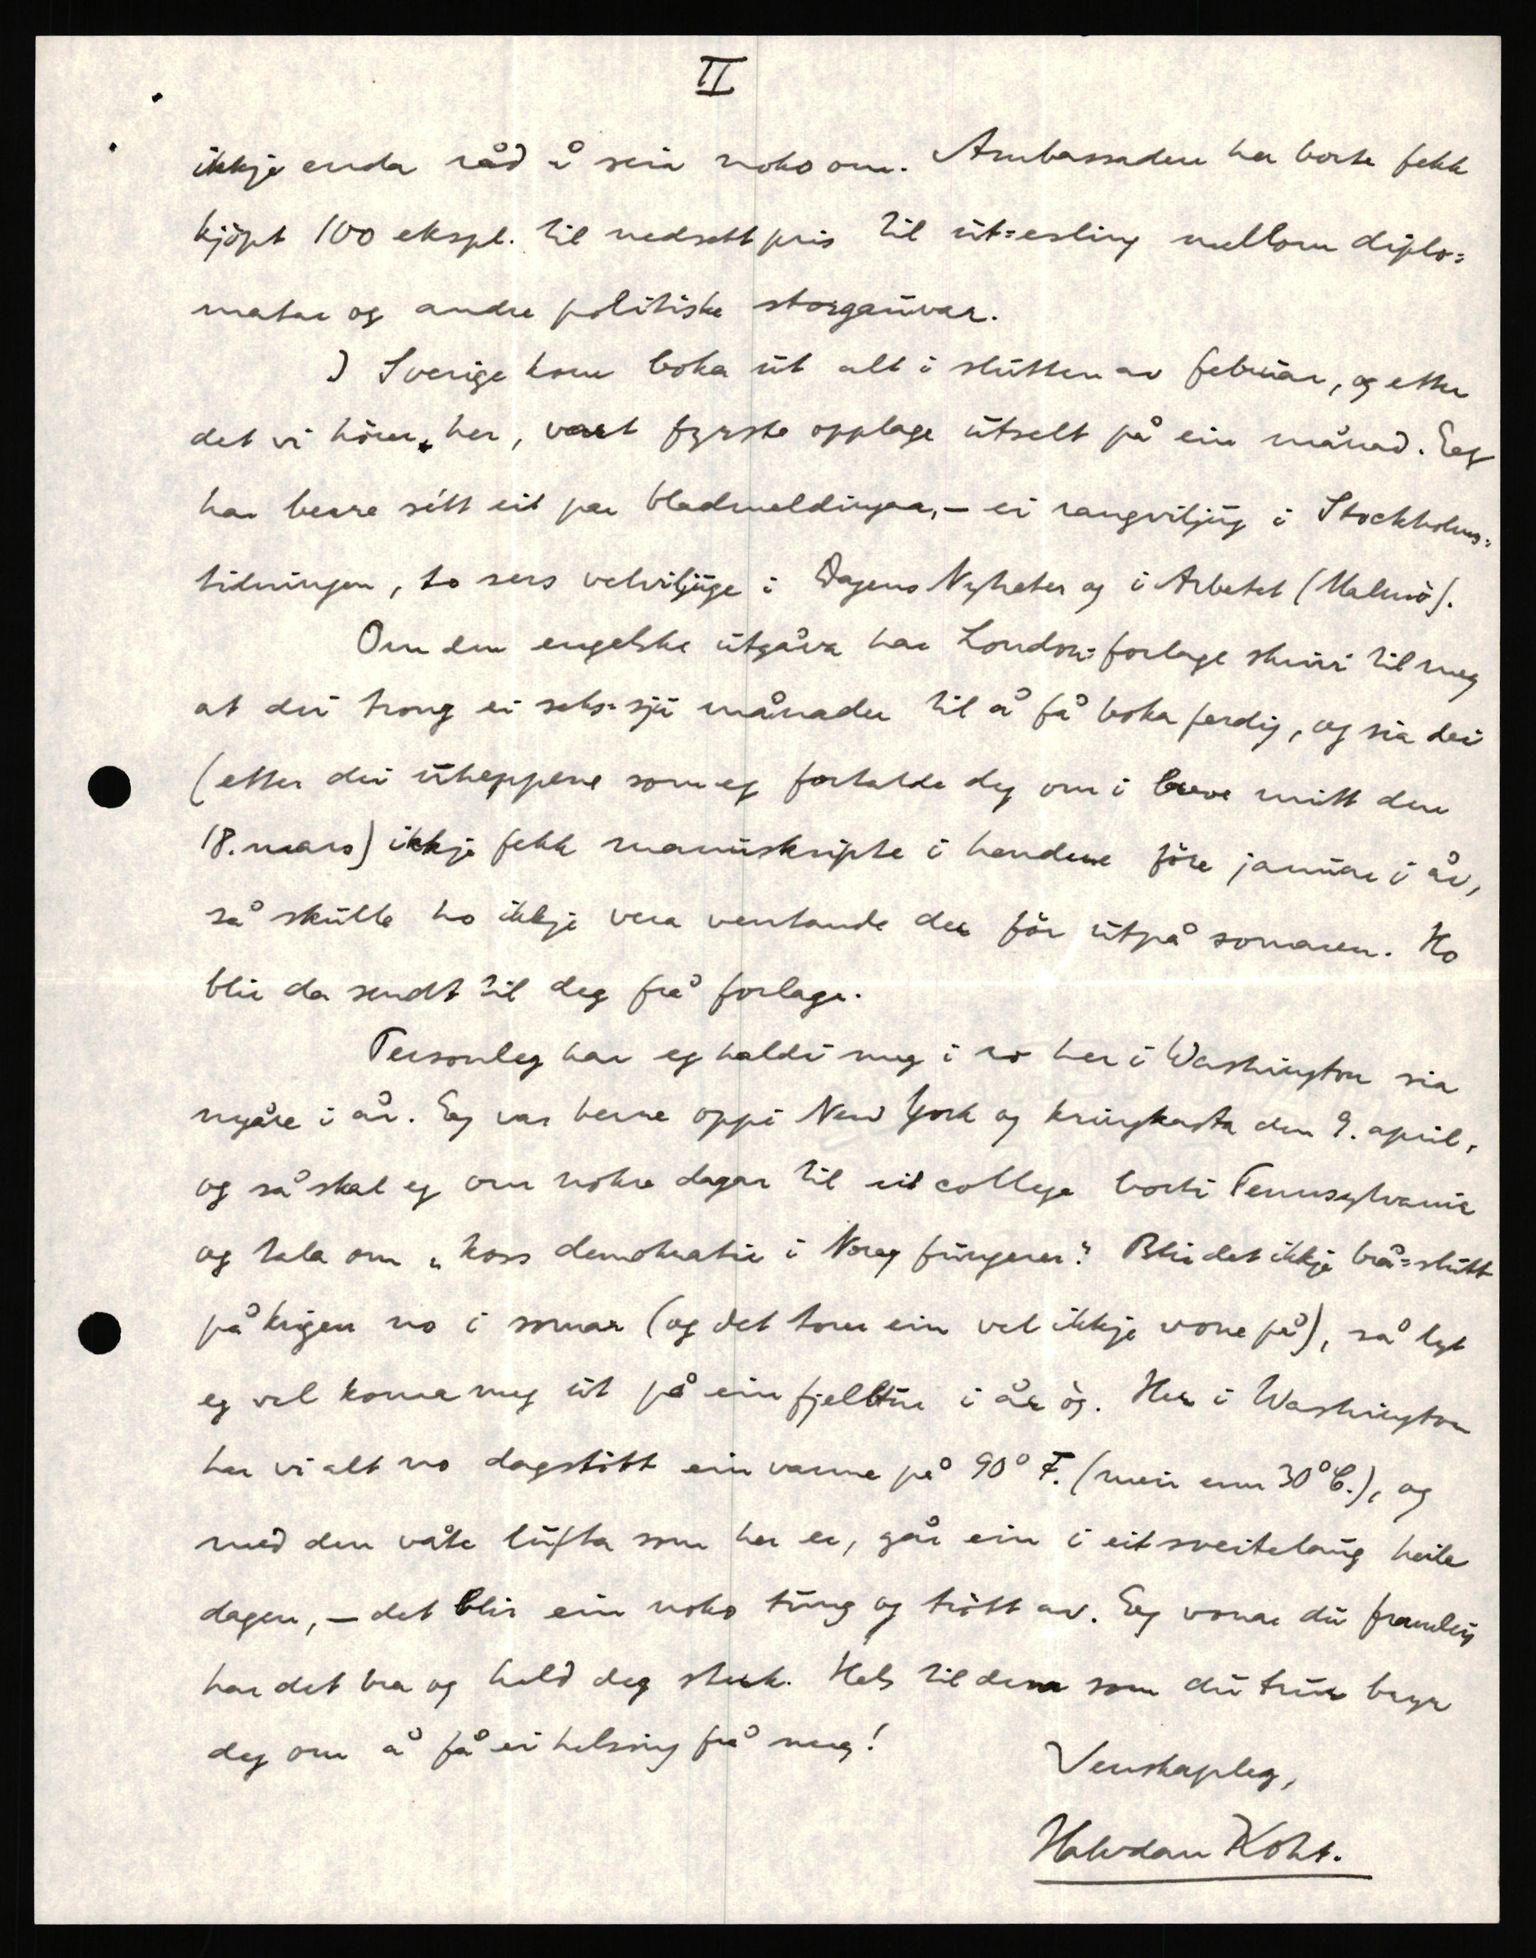 II
ikkje enda råd å seia noko om. Ambassaden her borte fekk
kjöpt 100 ekspl. til nedsett pris til ut=esling mellom diplo=
matar og andre politiske storgauvar.
I Sverige kom boka ut alt i slutten av februar, og etter
det vi hörer her, vart fyrste opplage utselt på ein månad. Eg
har berre sétt eit par bladmeldingar, – ei rangviljug i Stockholms=
tidningen, to sers velviljuge i Dagens Nyheter og i Arbetet (Malmö).
Om den engelske utgåva har London=forlage skrivi til meg
at dei trong ei seks-sju månader til å få boka ferdig, og sia dei
(etter dei uheppene som eg fortalde deg om i breve mitt den
18. mars) ikkje fekk manuskripte i hendene före januar i år,
så skulle ho ikkje vera ventande der för utpå somaren. Ho
blir da sendt til deg frå forlage.
Personleg har eg haldi meg i ro her i Washington sia
nyåre i år. Eg var berre oppi New York og kringkasta den 9. april,
og så skal eg om nokre dagar til eit college borti Pennsylvania
og tala om „koss demokratie i Noreg fungerer". Blir det ikkje brå=slutt
på krigen no i somar (og det torer ein vel ikkje vone på), så lyt
eg vel koma meg ut på ein fjelltur i år òg. Her i Washington
har vi alt no dagstött ein varme på 90° F. (meir enn 30° C.), og
med den våte lufta som her er, går ein i eit sveitelaug heile
dagen, – det blir ein noko tung og trött av. Eg vonar du framleis
har det bra og held deg sterk. Hels til dem som du trur bryr
deg om å få ei helsing frå meg!
Venskapleg,
Halvdan Koht.